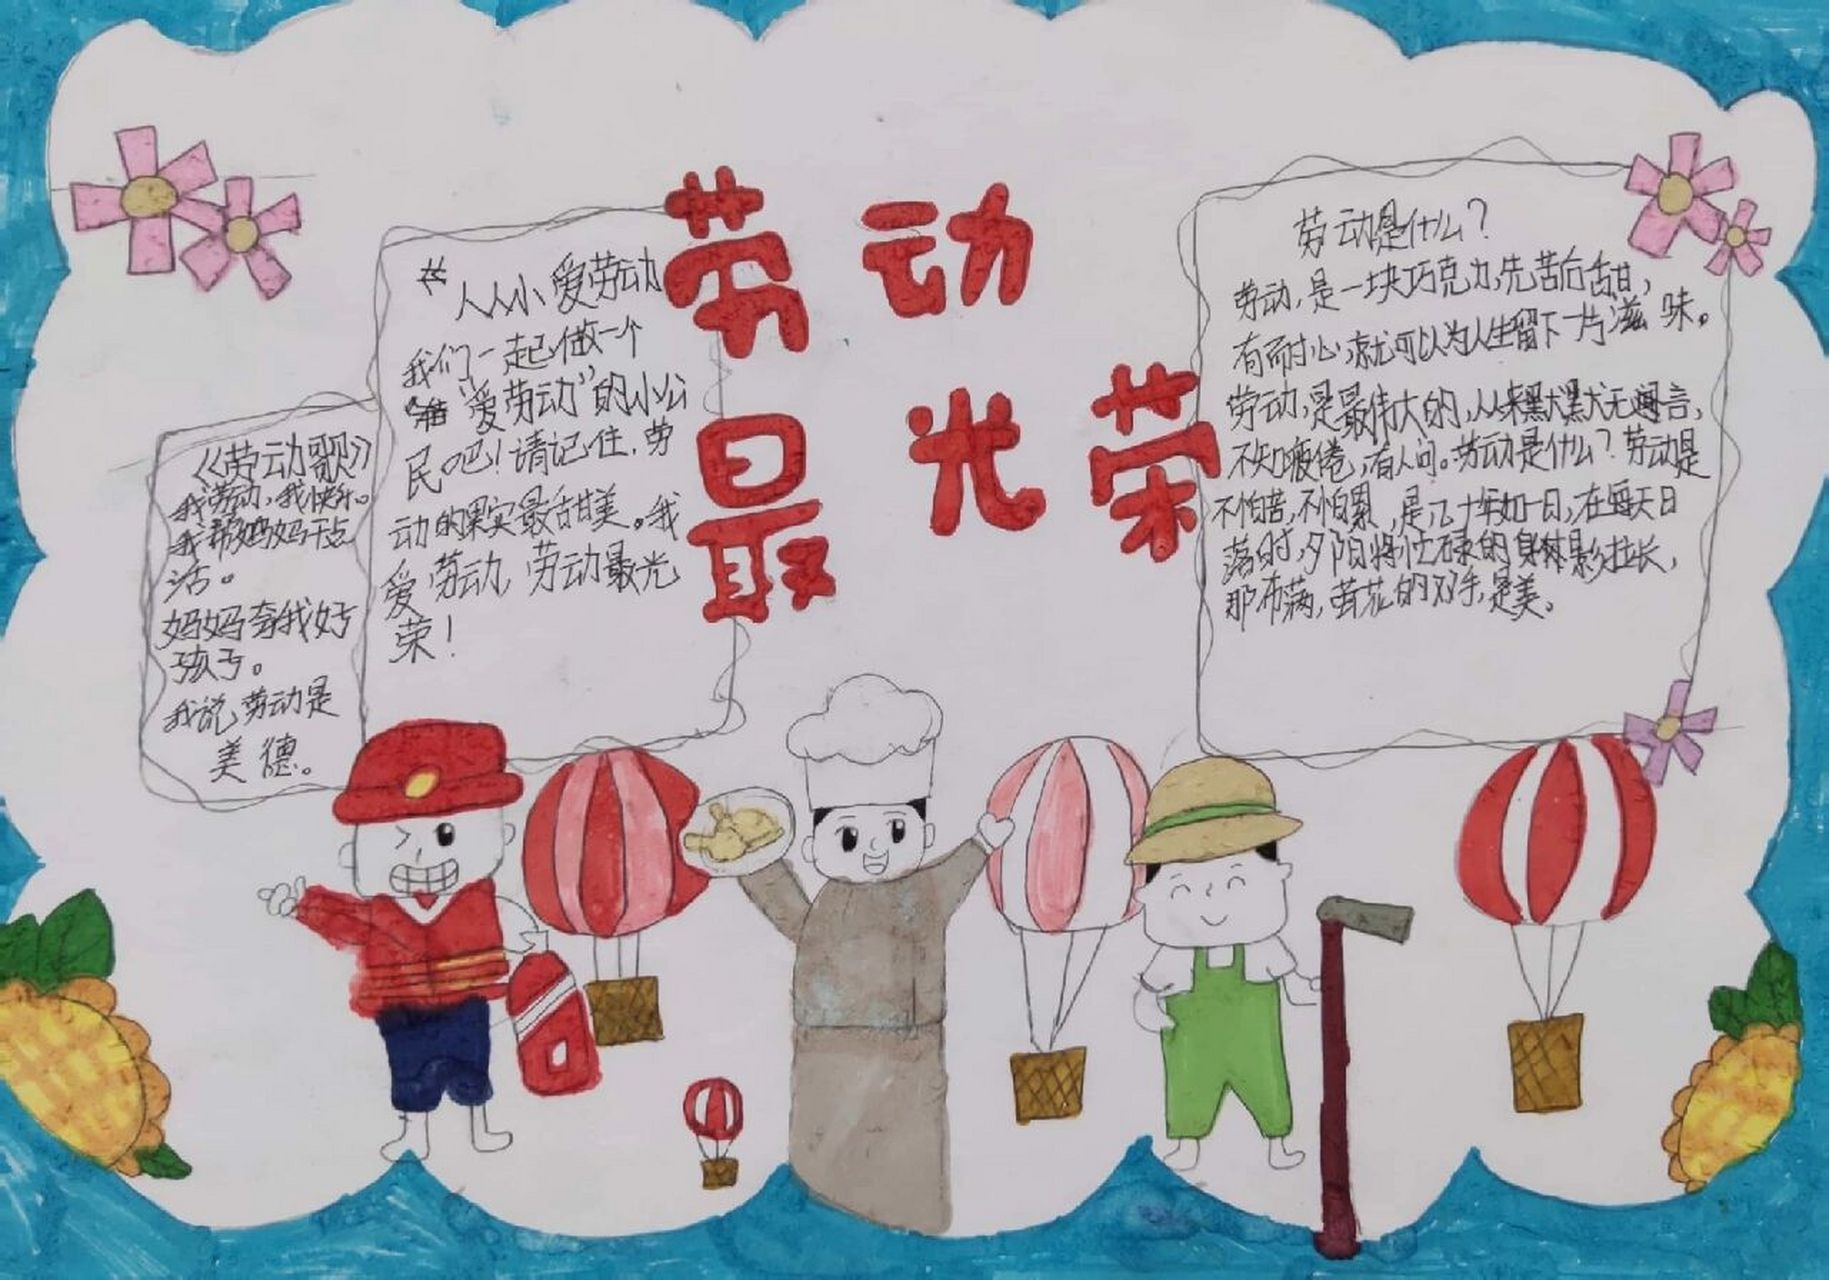 劳动
最光荣
《劳动歌》
我劳动,我快乐。
我帮妈妈干点
活。
妈妈夸我好
孩子。
我说劳动是
美德。
人人小爱劳动
我们一起做一个
“爱劳动”的小公
民吧!请记住,劳
动的果实最甜美。我
爱劳动,劳动最光
荣!
劳动是什么?
劳动,是一块巧克力,先苦后甜,
有耐心,就可以为人生留下一片滋味。
劳动,是最伟大的,从来默默无言,
不知疲倦,有人问。劳动是什么?劳动是
不怕苦,不怕累,是几十年如一日,在每天日
落时,夕阳将忙碌的身影拉长,
那布满,茧花的双手,是美。